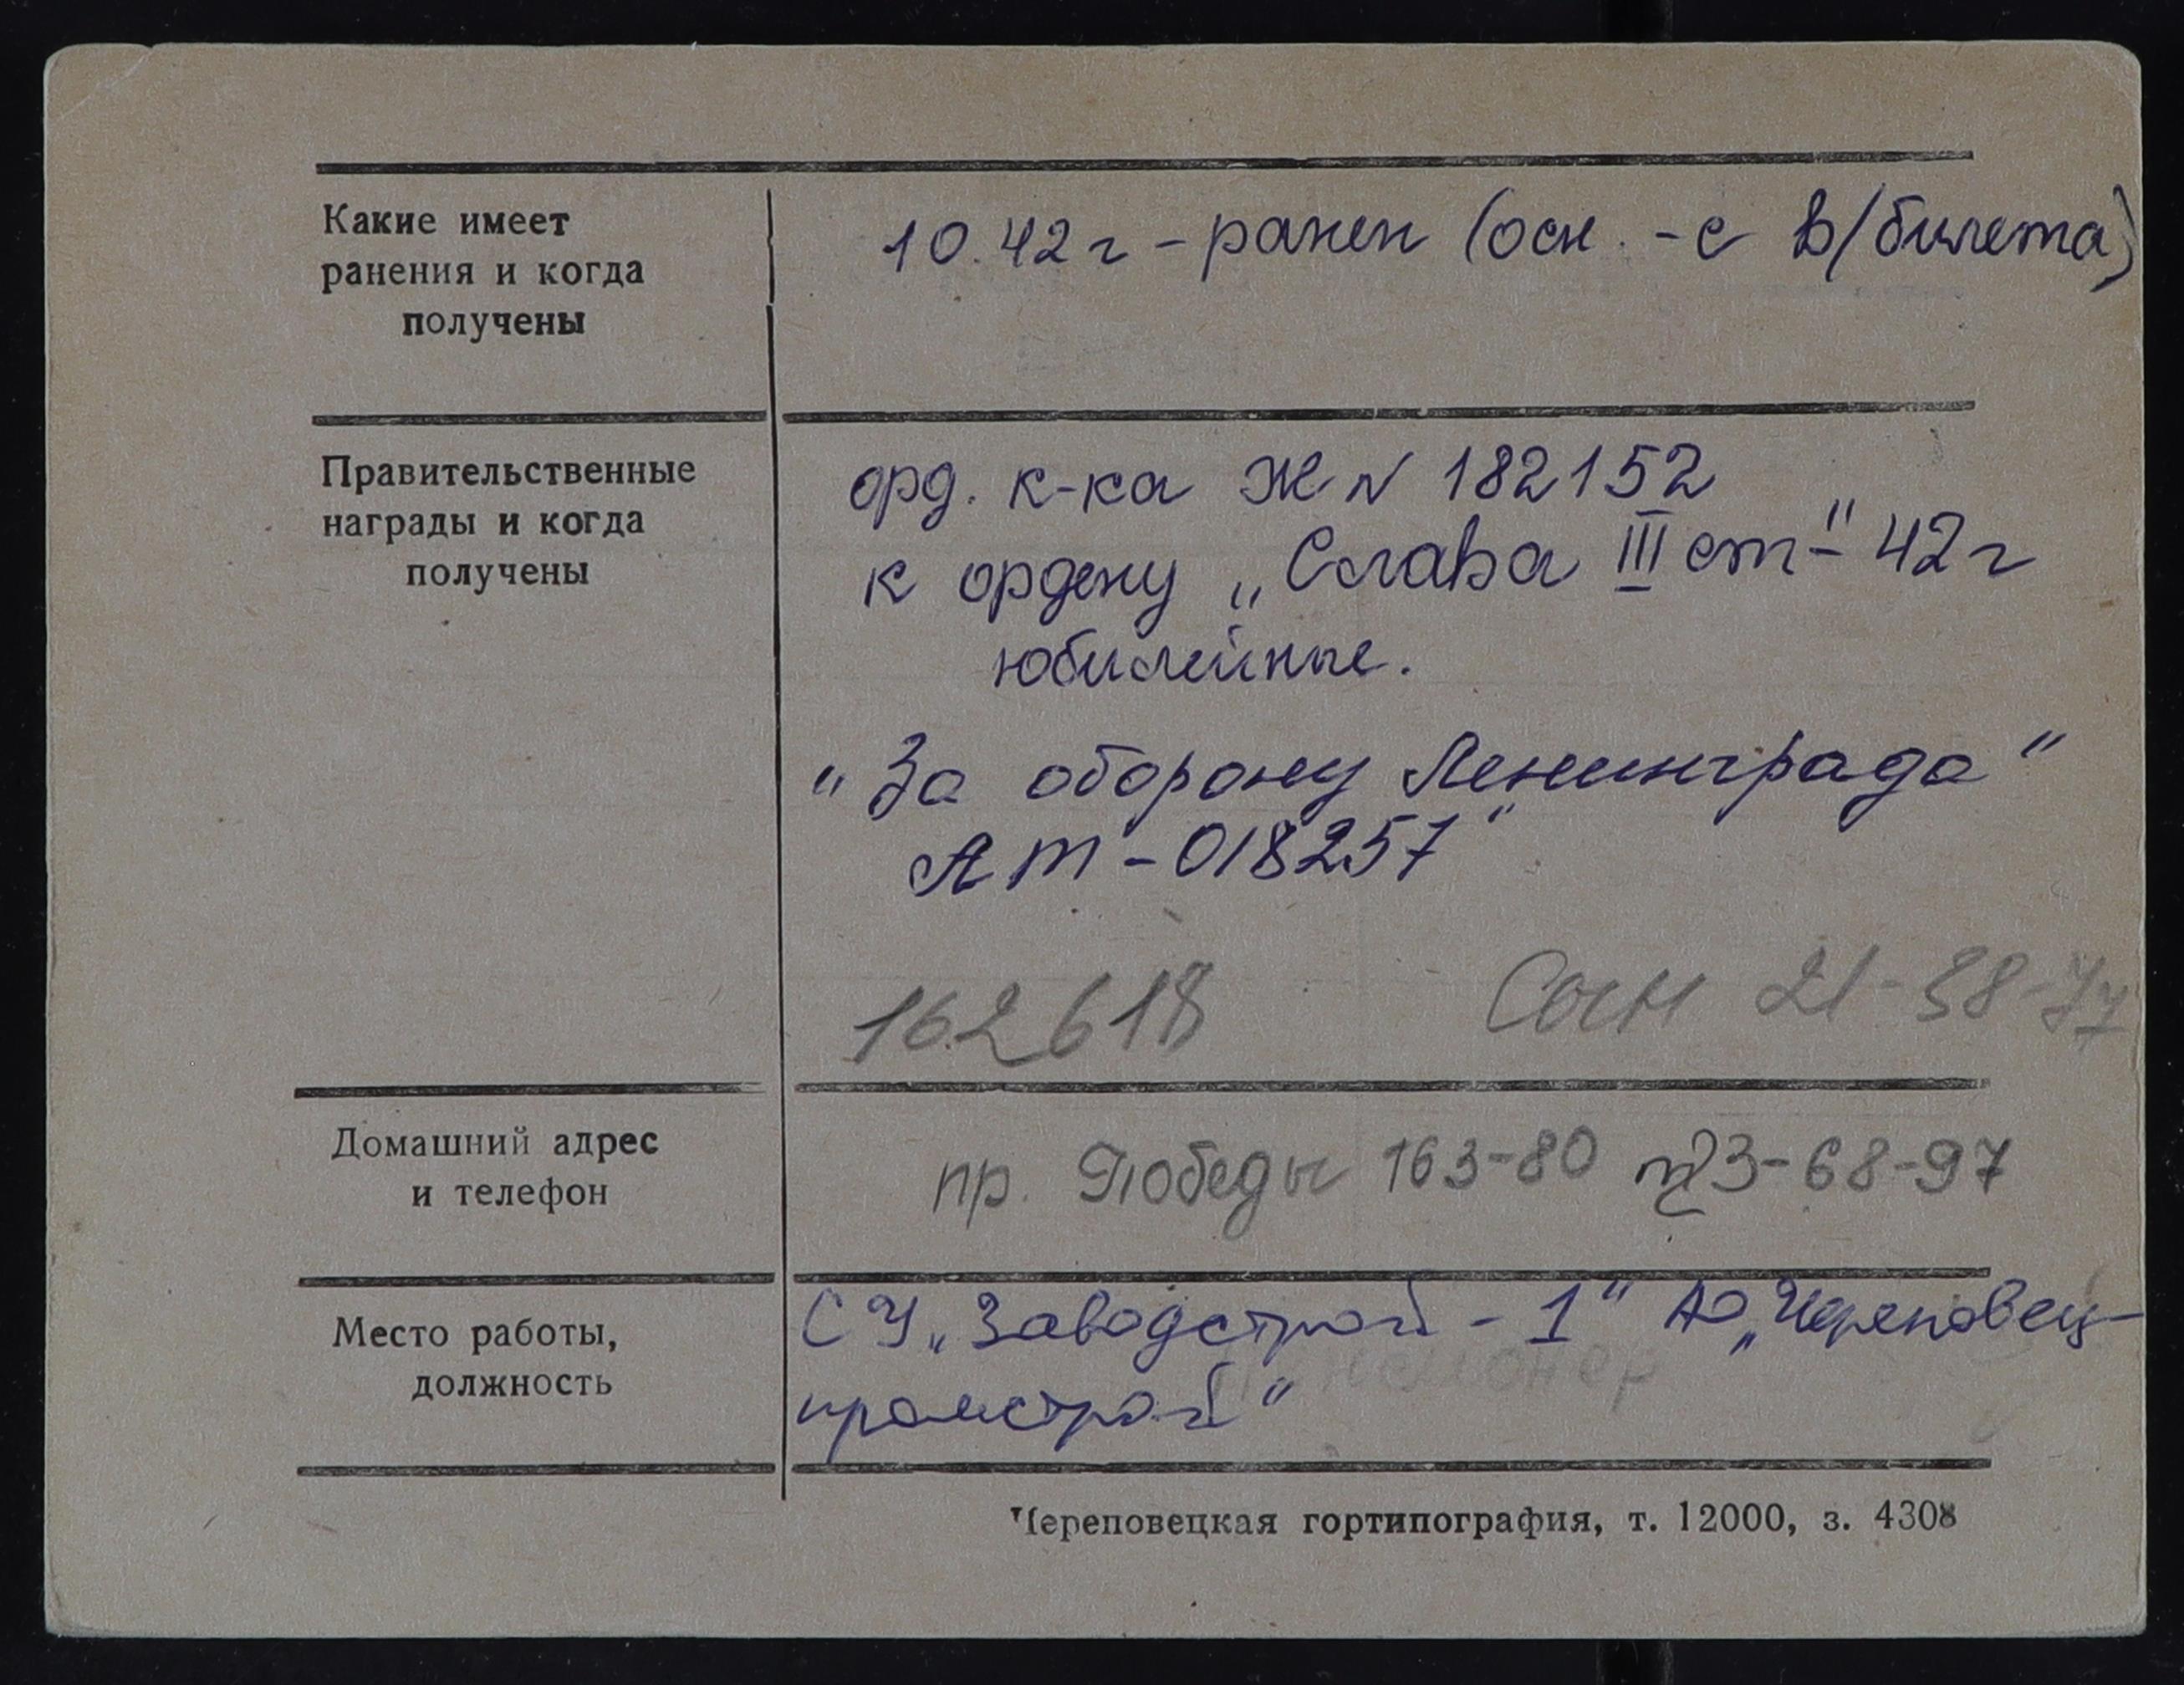 Какие имеет
ранения и когда
получены
10.42 г - ранен (осн. - с в/билета)
Правительственные
награды и когда
получены
орд. к-ка Ж N 182152
к ордену „Слава III ст-" 42 г
юбилейные.
"За оборону Ленинграда"
АТ - 018257"
162618
21-38-77
Домашний адрес
и телефон
пр. Победы 163-80 т 3-68-97
Место работы,
должность
СУ „Заводстрой - 1" АО „Череповец-
промстрой"
пенсионер
Череповецкая гортипография, т. 12000, з. 4308